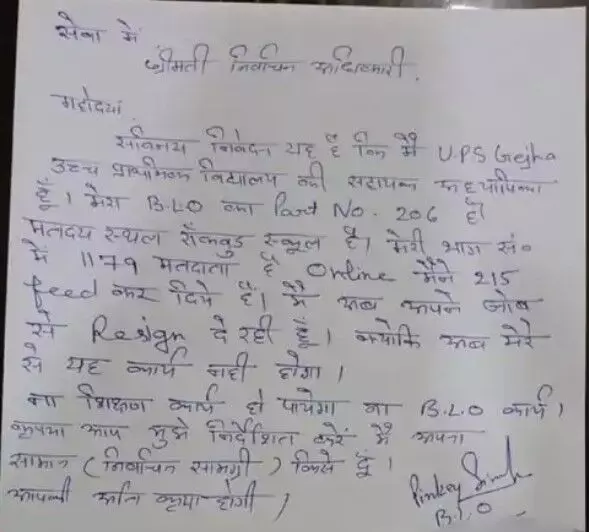 सेवा में
श्रीमती निर्वाचन अधिकारी.
महोदया
सविनय निवेदन यह है कि मैं U.P.S Gejha
उच्च प्राथमिक विद्यालय की सहायक अध्यापिका
हूँ। मेरा B.L.O का Part No. 206 है
मतदय स्थल रॉकवुड स्कूल है। मेरी भाग सं०
में 1179 मतदाता है Online मैंने 215
feed कर दिये है। मैं अब अपने जोब
से Resign दे रही हूँ। क्योकि अब मेरे
से यह कार्य नही होगा।
ना शिक्षण कार्य हो पायेगा ना B.L.O कार्य।
कृपया आप मुझे निर्देशित करें मैं अपना
सामान (निर्वाचन सामग्री) किसे दूं।
आपकी अति कृपा होगी।
Pinky Singh
B.L.O